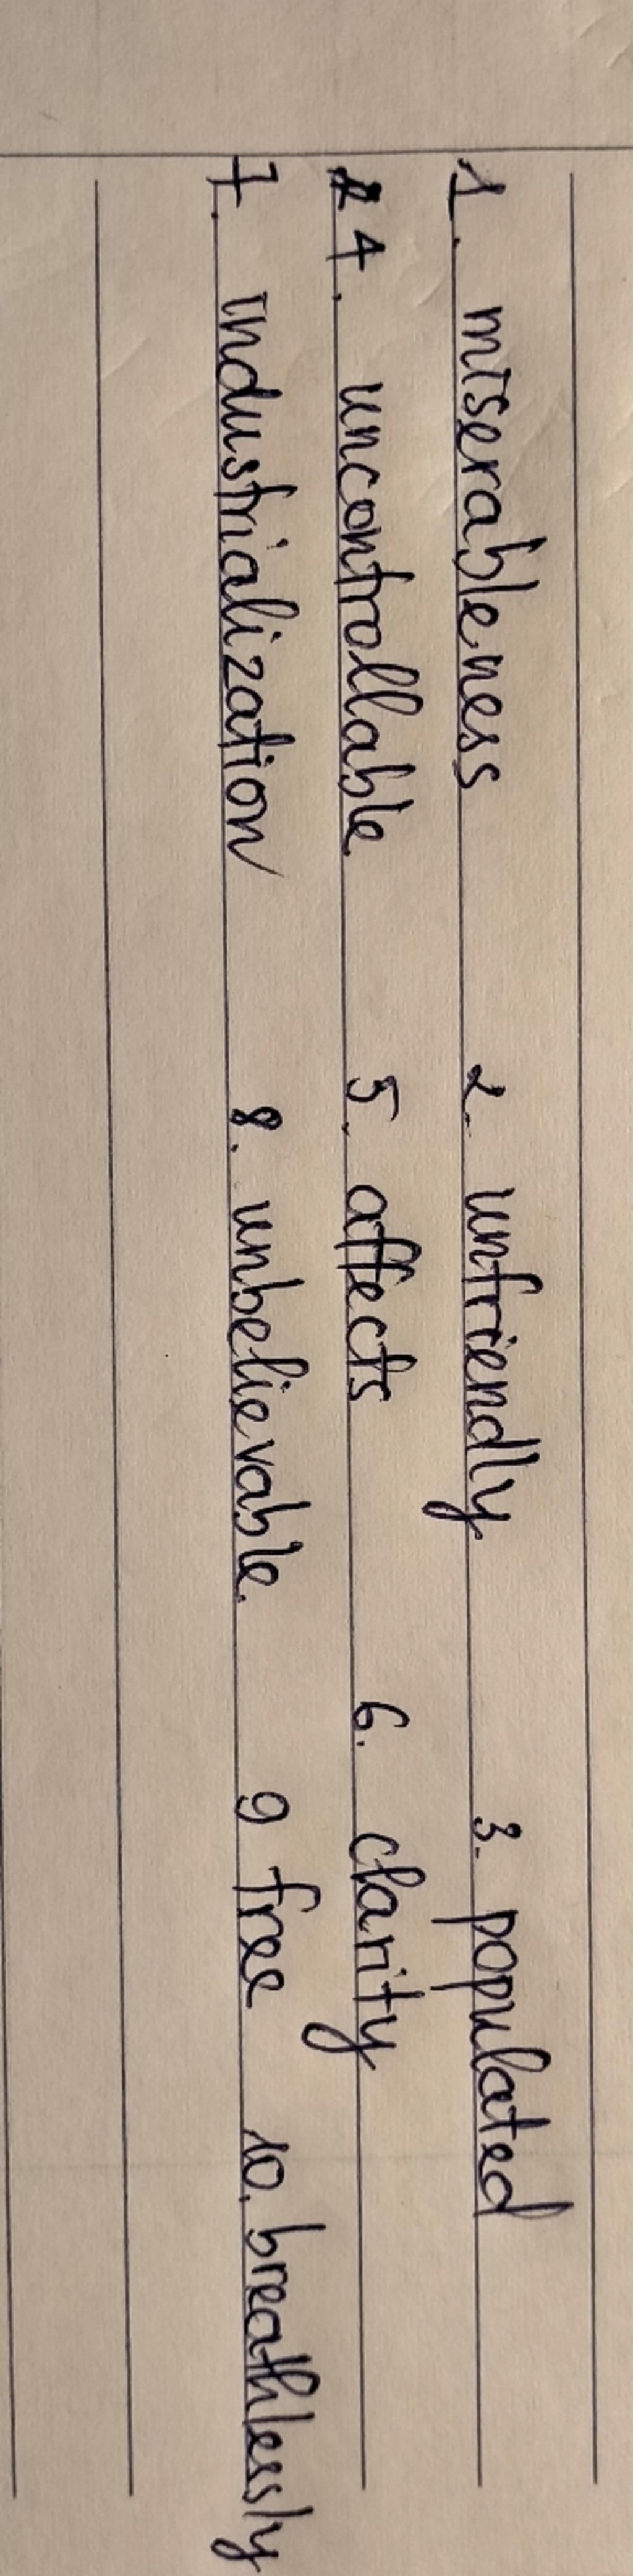 1. miserableness 2. unfriendly 3. populated
4. uncontrollable 5. affects 6. clarity
7. industrialization 8. unbelievable 9 free 10. breathlessly